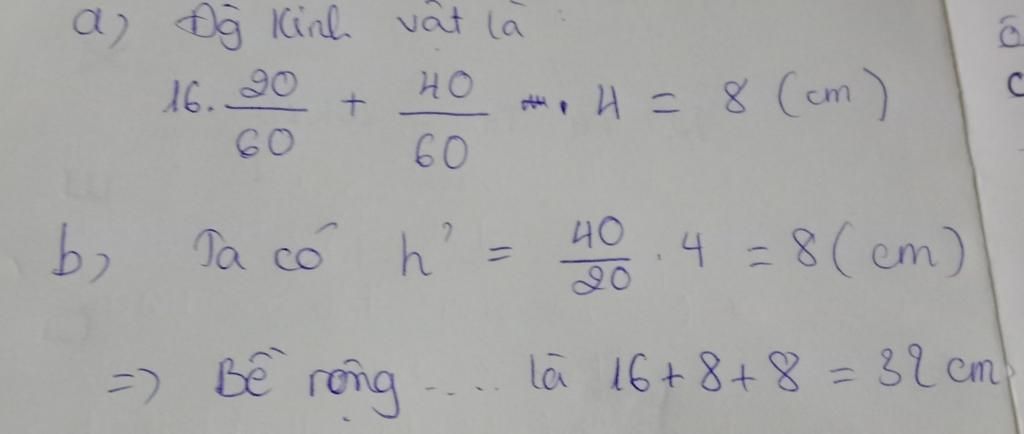 a) Độ Kính vật là:
16. 20/60 + 40/60 . 4 = 8 (cm)
b) Ta có h' = 40/20 . 4 = 8 (cm)
=> Bề rộng .... là 16 + 8 + 8 = 32 cm